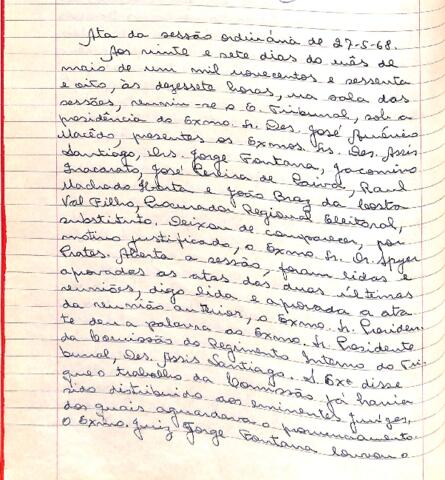 Ata da sessão ordinária de 27-5-68.
Aos vinte e sete dias do mês de
maio de um mil novecentos e sessenta
e oito, às dezessete horas, na sala das
sessões, reuniu-se o E. Tribunal, sob a
presidência do Exmo. Sr. Des. José Américo
Macêdo, presentes os Exmos. Srs. Des. Assis
Santiago, Drs. Jorge Fontana, Jacomino
Inacarato, José Pereira de Paiva, Raul
Machado Horta e João Braz da Costa
Val Filho, Procurador Regional Eleitoral,
substituto. Deixou de comparecer, por
motivo justificado, o Exmo. Sr. Dr. Spyer
Prates. Aberta a sessão, foram lidas e
aprovadas as atas das duas últimas
reuniões, digo lida e aprovada a ata
da reunião anterior, o Exmo. Sr. Presiden-
te deu a palavra ao Exmo. Sr. Presidente
da Comissão do Regimento Interno do Tri-
bunal, Des. Assis Santiago. S. Exª disse
que o trabalho da Comissão já havia
sido distribuído aos eminentes juízes,
dos quais aguardava o pronunciamento.
O Exmo. Juiz Jorge Fontana louvou o